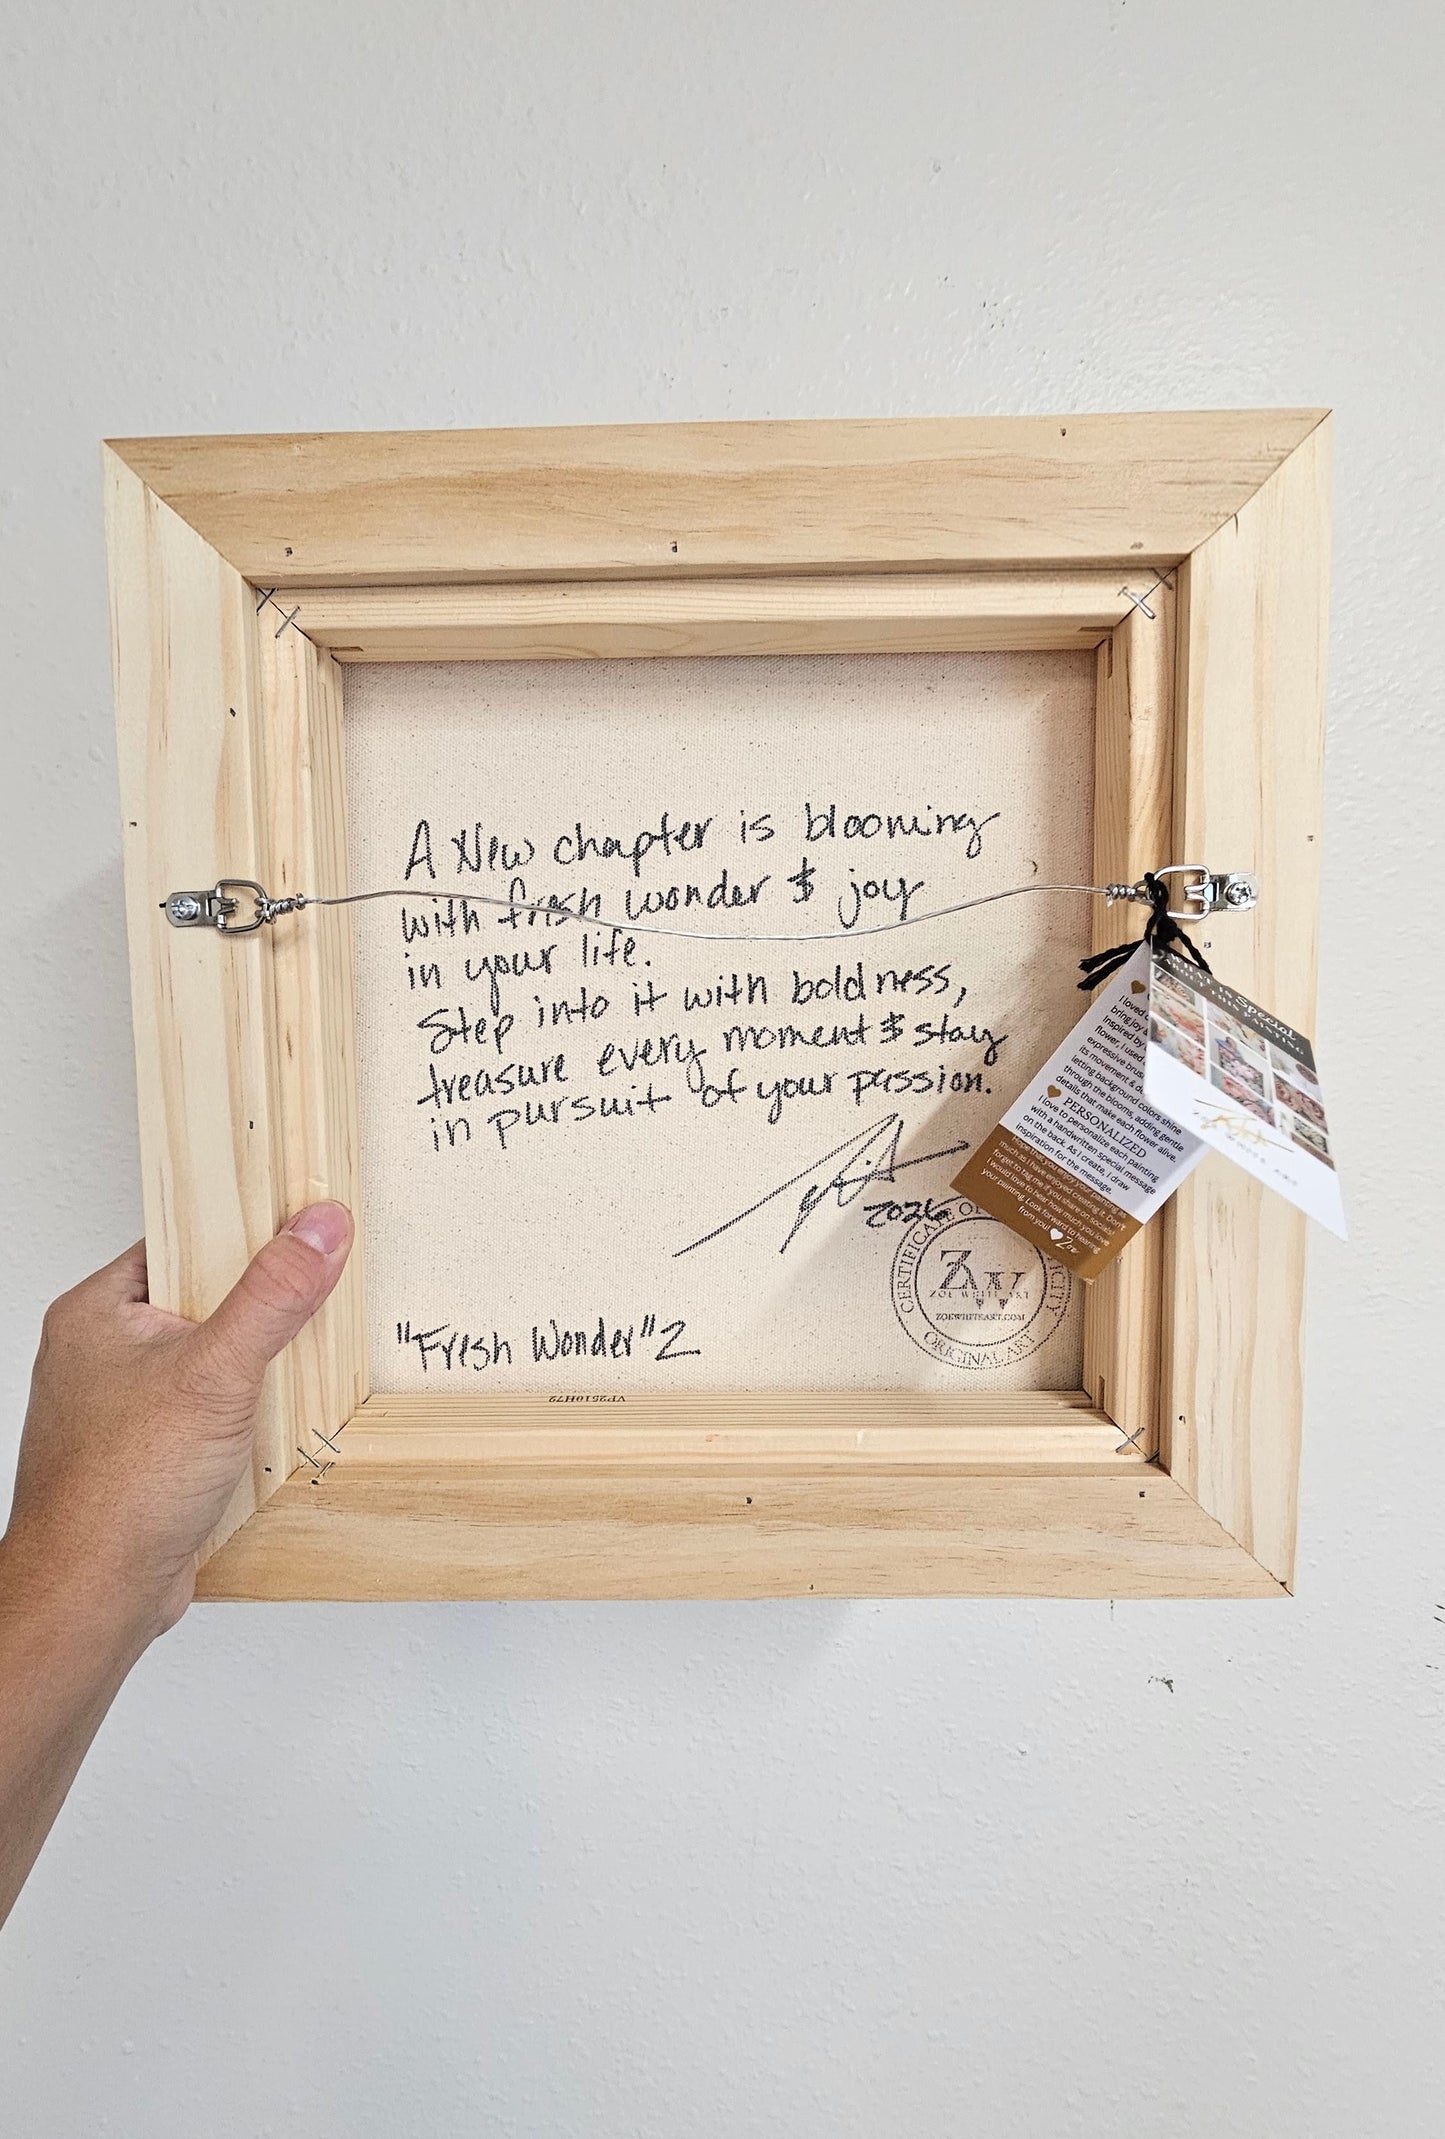 A New chapter is blooming
with fresh wonder & joy
in your life.
Step into it with boldness,
treasure every moment & stay
in pursuit of your passion.
2026
"Fresh Wonder" 2
CERTIFICATE OF
ORIGINAL ART
ZW
ZOE WHITE ART
ZOEWHITEART.COM
VP2510H72
I loved
bring joy &
inspired by
flower, I used
expressive brus
its movement & d
letting background colors shine
through the blooms, adding gentle
details that make each flower alive.
PERSONALIZED
I love to personalize each painting
with a handwritten special message
on the back. As I create, I draw
inspiration for the message.
Hope that you enjoy your painting as
much as I have enjoyed creating it. Don't
forget to tag me if you share on socials!
I would love to hear how much you love
your painting. Look forward to hearing
from you! Zoe
Special